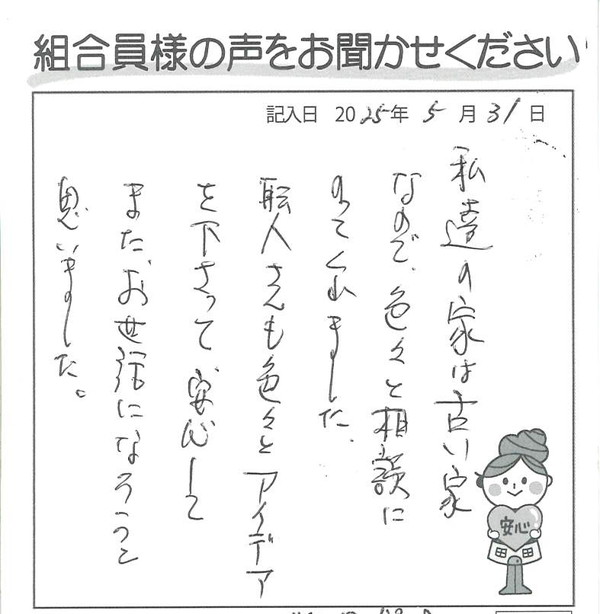 組合員様の声をお聞かせください
記入日 2025年 5月 31日
私達の家は古い家
なので、色々と相談に
のってくれました。
職人さんも色々とアイデア
を下さって、安心して
また、お世話になろうと
思いました。
安心